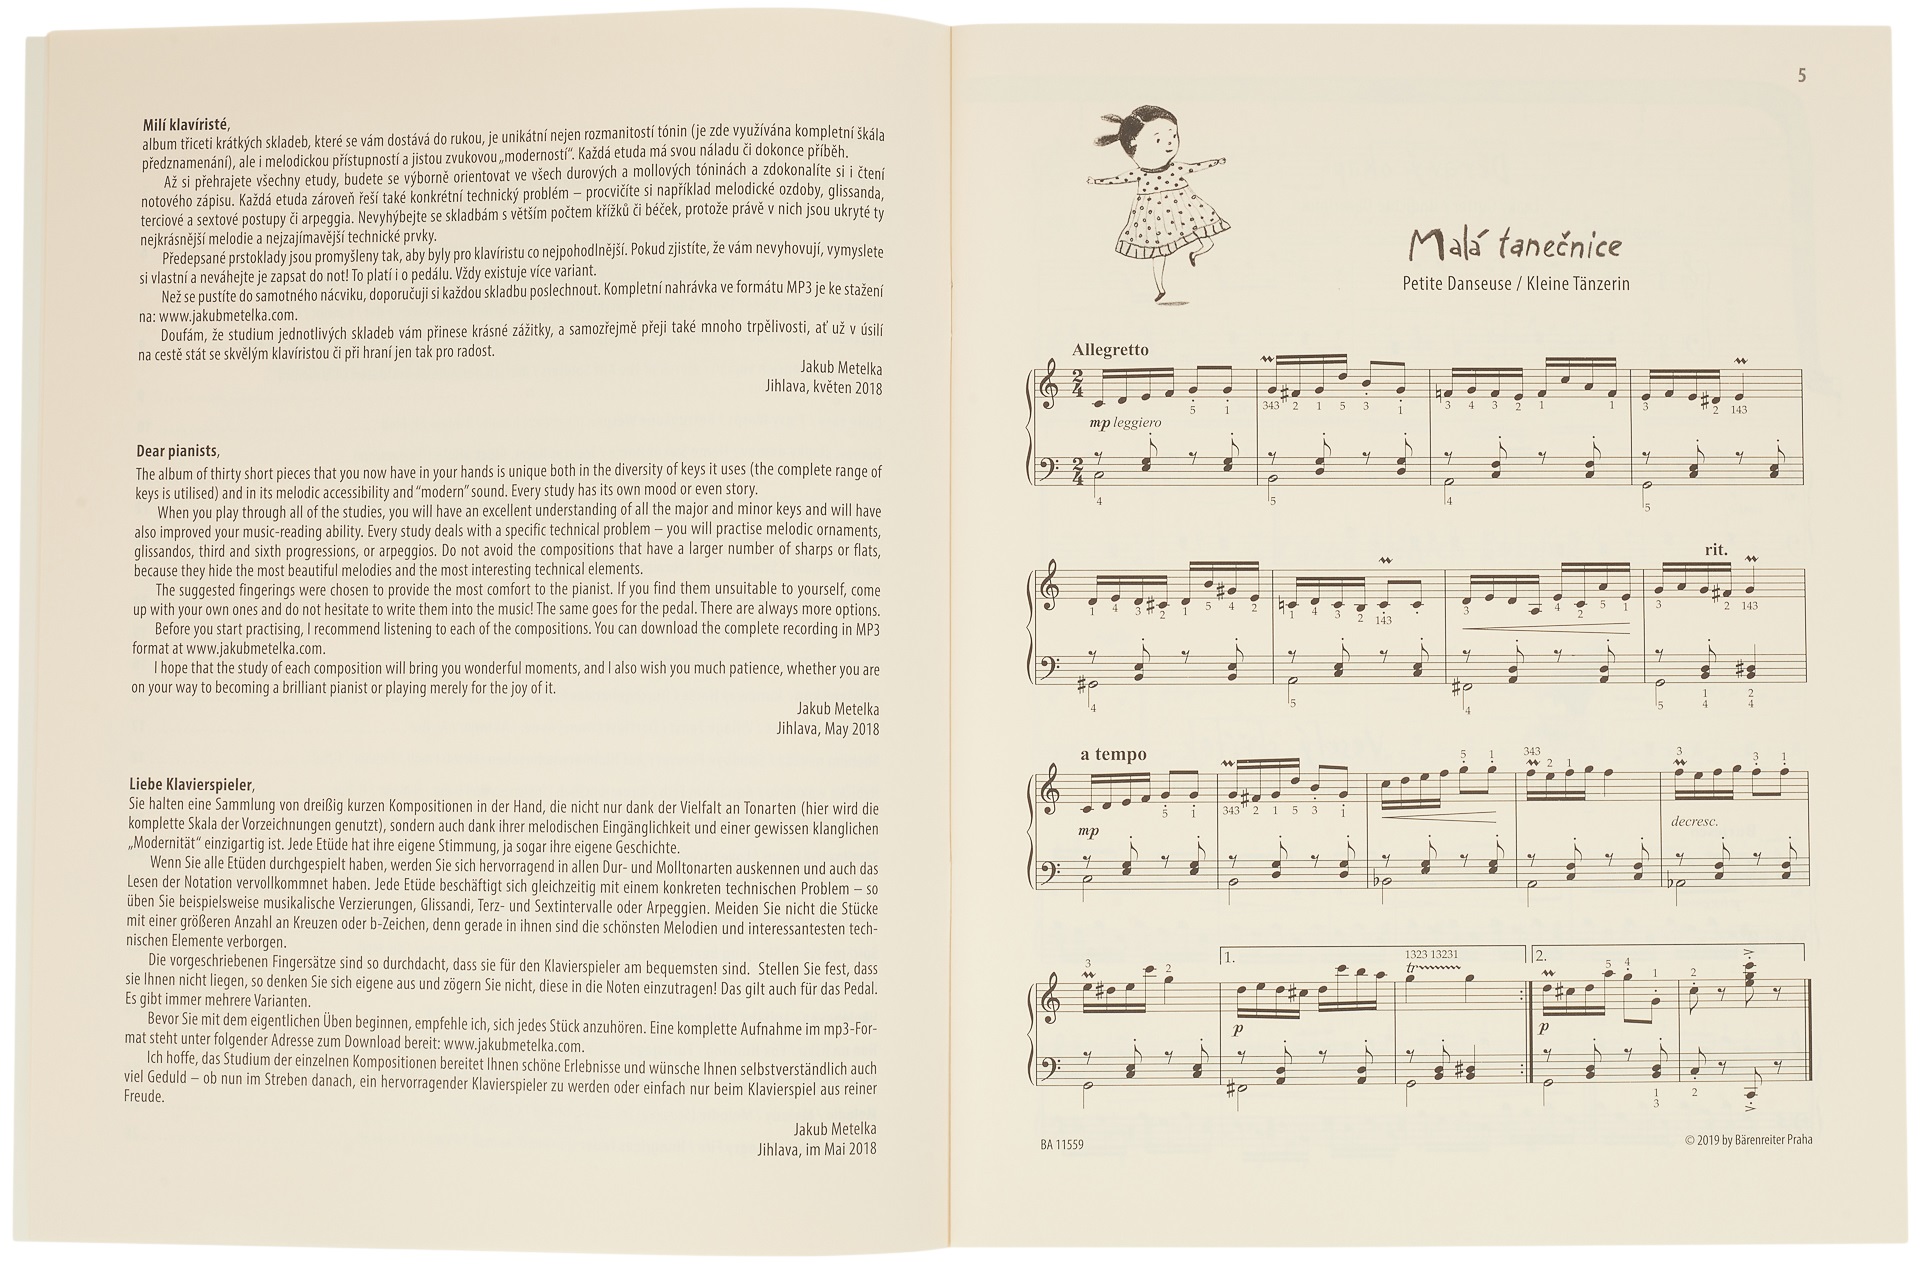 Milí klavíristé,
album třiceti krátkých skladeb, které se vám dostává do rukou, je unikátní nejen rozmanitostí tónin (je zde využívána kompletní škála
předznamenání), ale i melodickou přístupností a jistou zvukovou „moderností“. Každá etuda má svou náladu či dokonce příběh.
Až si přehrajete všechny etudy, budete se výborně orientovat ve všech durových a mollových tóninách a zdokonalíte si i čtení
notového zápisu. Každá etuda zároveň řeší také konkrétní technický problém – procvičíte si například melodické ozdoby, glissanda,
terciové a sextové postupy či arpeggia. Nevyhýbejte se skladbám s větším počtem křížků či béček, protože právě v nich jsou ukryté ty
nejkrásnější melodie a nejzajímavější technické prvky.
Předepsané prstoklady jsou promyšleny tak, aby byly pro klavíristu co nejpohodlnější. Pokud zjistíte, že vám nevyhovují, vymyslete
si vlastní a neváhejte je zapsat do not! To platí i o pedálu. Vždy existuje více variant.
Než se pustíte do samotného nácviku, doporučuji si každou skladbu poslechnout. Kompletní nahrávka ve formátu MP3 je ke stažení
na: www.jakubmetelka.com.
Doufám, že studium jednotlivých skladeb vám přinese krásné zážitky, a samozřejmě přeji také mnoho trpělivosti, ať už v úsilí
na cestě stát se skvělým klavíristou či při hraní jen tak pro radost.
Jakub Metelka
Jihlava, květen 2018
Dear pianists,
The album of thirty short pieces that you now have in your hands is unique both in the diversity of keys it uses (the complete range of
keys is utilised) and in its melodic accessibility and “modern” sound. Every study has its own mood or even story.
When you play through all of the studies, you will have an excellent understanding of all the major and minor keys and will have
also improved your music-reading ability. Every study deals with a specific technical problem – you will practise melodic ornaments,
glissandos, third and sixth progressions, or arpeggios. Do not avoid the compositions that have a larger number of sharps or flats,
because they hide the most beautiful melodies and the most interesting technical elements.
The suggested fingerings were chosen to provide the most comfort to the pianist. If you find them unsuitable to yourself, come
up with your own ones and do not hesitate to write them into the music! The same goes for the pedal. There are always more options.
Before you start practising, I recommend listening to each of the compositions. You can download the complete recording in MP3
format at www.jakubmetelka.com.
I hope that the study of each composition will bring you wonderful moments, and I also wish you much patience, whether you are
on your way to becoming a brilliant pianist or playing merely for the joy of it.
Jakub Metelka
Jihlava, May 2018
Liebe Klavierspieler,
Sie halten eine Sammlung von dreißig kurzen Kompositionen in der Hand, die nicht nur dank der Vielfalt an Tonarten (hier wird die
komplette Skala der Vorzeichnungen genutzt), sondern auch dank ihrer melodischen Eingänglichkeit und einer gewissen klanglichen
„Modernität“ einzigartig ist. Jede Etüde hat ihre eigene Stimmung, ja sogar ihre eigene Geschichte.
Wenn Sie alle Etüden durchgespielt haben, werden Sie sich hervorragend in allen Dur- und Molltonarten auskennen und auch das
Lesen der Notation vervollkommnet haben. Jede Etüde beschäftigt sich gleichzeitig mit einem konkreten technischen Problem – so
üben Sie beispielsweise musikalische Verzierungen, Glissandi, Terz- und Sextintervalle oder Arpeggien. Meiden Sie nicht die Stücke
mit einer größeren Anzahl an Kreuzen oder b-Zeichen, denn gerade in ihnen sind die schönsten Melodien und interessantesten tech-
nischen Elemente verborgen.
Die vorgeschriebenen Fingersätze sind so durchdacht, dass sie für den Klavierspieler am bequemsten sind. Stellen Sie fest, dass
sie Ihnen nicht liegen, so denken Sie sich eigene aus und zögern Sie nicht, diese in die Noten einzutragen! Das gilt auch für das Pedal.
Es gibt immer mehrere Varianten.
Bevor Sie mit dem eigentlichen Üben beginnen, empfehle ich, sich jedes Stück anzuhören. Eine komplette Aufnahme im mp3-For-
mat steht unter folgender Adresse zum Download bereit: www.jakubmetelka.com.
Ich hoffe, das Studium der einzelnen Kompositionen bereitet Ihnen schöne Erlebnisse und wünsche Ihnen selbstverständlich auch
viel Geduld – ob nun im Streben danach, ein hervorragender Klavierspieler zu werden oder einfach nur beim Klavierspiel aus reiner
Freude.
Jakub Metelka
Jihlava, im Mai 2018
5
Malá tanečnice
Petite Danseuse / Kleine Tänzerin
Allegretto
2 4
5 1 343 2 1 5 3 1 3 4 3 2 1 1 3 2 143
mp leggiero
2 4
4 5 4 5
rit.
1 4 3 2 1 5 4 2 1 4 3 2 143 3 4 2 5 1 3 2 143
4 5 4 5 1 4 2 4
a tempo
5 1 343 2 1 3 3 1
5 1 343 2 1 5 3 1
mp
decresc.
1. 1323 13231 2.
3 2 tr 5 4 1 2
p p
1 3 2
BA 11559
© 2019 by Bärenreiter Praha